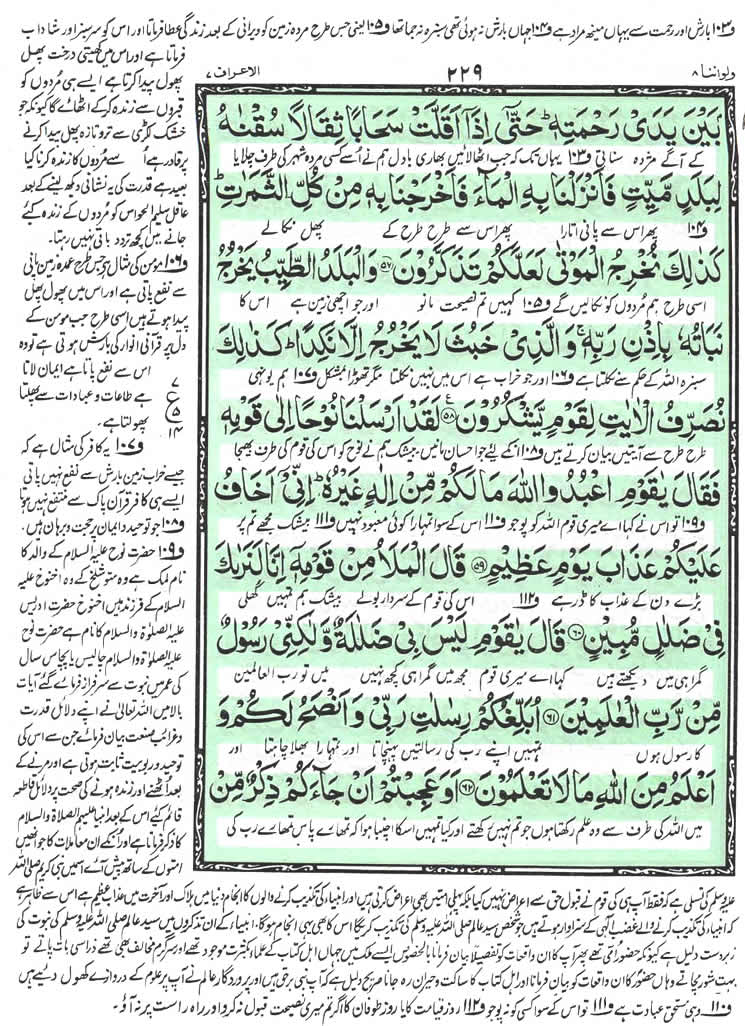 و۱۰۳ بارش اور رحمت سے یہاں مینھ مراد ہے و۱۰۴ جہاں بارش نہ ہوئی تھی سبزہ نہ جما تھا و۱۰۵ یعنی جس طرح مردہ زمین کو ویرانی کے بعد زندگی عطا فرماتا اور اس کو سرسبز اور شاداب
ولواننا ۸
۲۲۹
الاعراف ۷
فرماتا ہے اور اس میں کھیتی درخت پھل
پھول پیدا کرتا ہے ایسے ہی مُردوں کو
قبروں سے زندہ کرکے اٹھائے گا کیونکہ جو
خشک لکڑی سے تروتازہ پھل پیدا کرنے
پر قادر ہے اُسے مُردوں کا زندہ کرنا کیا
بعید ہے قدرت کی یہ نشانی دیکھ لینے کے بعد
عاقل سلیم الحواس کو مُردوں کے زندہ کئے
جانے میں کچھ تردد باقی نہیں رہتا۔
و۱۰۶ مومن کی مثال ہے جس طرح عمدہ زمین پانی
سے نفع پاتی ہے اور اس میں پھول پھل
پیدا ہوتے ہیں اسی طرح جب مومن کے
دل پر قرآنی انوار کی بارش ہوتی ہے تو وہ
اس سے نفع پاتا ہے ایمان لاتا
ہے طاعات و عبادات سے پھلتا
پھولتا ہے۔
و۱۰۷ یہ کافر کی مثال ہے کہ
جیسے خراب زمین بارش سے نفع نہیں پاتی
ایسے ہی کافر قرآن پاک سے منتفع نہیں ہوتا
و۱۰۸ جو توحید و ایمان پر حجت و برہان ہیں۔
و۱۰۹ حضرت نوح علیہ السلام کے والد کا
نام لمک ہے وہ متوشلخ کے وہ اخنوخ علیہ
السلام کے فرزند ہیں اخنوخ حضرت ادریس
علیہ الصلوٰۃ والسلام کا نام ہے حضرت نوح
علیہ الصلوٰۃ والسلام چالیس یا پچاس سال
کی عمر میں نبوت سے سرفراز فرمائے گئے آیات
بالا میں اللہ تعالیٰ نے اپنے دلائل قدرت
و غرائب صنعت بیان فرمائے جن سے اس کی
توحید و ربوبیت ثابت ہوتی ہے اور مرنے کے
بعد اُٹھنے اور زندہ ہونے کی صحت پر دلائل قاطعہ
قائم کئے اس کے بعد انبیاء علیہم الصلاۃ والسلام
کا ذکر فرماتا ہے اور اُنکے ان معاملات کا جو انھیں
امتوں کے ساتھ پیش آئے اسمیں نبی کریم صلی اللہ
۷
ع
۵
۱۴
بَيْنَ يَدَيْ رَحْمَتِهٖ ؕ حَتّٰۤى اِذَاۤ اَقَلَّتْ سَحَابًا ثِقَالًا سُقْنٰهُ
کے آگے مژدہ سناتی و۱۰۳ یہاں تک کہ جب اٹھا لائیں بھاری بادل ہم نے اُسے کسی مردہ شہر کی طرف چلایا
لِبَلَدٍ مَّيِّتٍ فَاَنْزَلْنَا بِهِ الْمَآءَ فَاَخْرَجْنَا بِهٖ مِنْ كُلِّ الثَّمَرٰتِ ؕ
و۱۰۴ پھر اس سے پانی اتارا پھر اس سے طرح طرح کے پھل نکالے
كَذٰلِكَ نُخْرِجُ الْمَوْتٰى لَعَلَّكُمْ تَذَكَّرُوْنَ ﴿۵۷﴾ وَالْبَلَدُ الطَّيِّبُ يَخْرُجُ
اسی طرح ہم مُردوں کو نکالیں گے و۱۰۵ کہیں تم نصیحت مانو اور جو اچھی زمین ہے اس کا
نَبَاتُهٗ بِاِذْنِ رَبِّهٖ ۚ وَالَّذِيْ خَبُثَ لَا يَخْرُجُ اِلَّا نَكِدًا ؕ كَذٰلِكَ
سبزہ اللہ کے حکم سے نکلتا ہے و۱۰۶ اور جو خراب ہے اس میں نہیں نکلتا مگر تھوڑا بمشکل و۱۰۷ ہم یونہی
نُصَرِّفُ الْاٰيٰتِ لِقَوْمٍ يَّشْكُرُوْنَ ﴿۵۸﴾ ع لَقَدْ اَرْسَلْنَا نُوْحًا اِلٰى قَوْمِهٖ
طرح طرح سے آیتیں بیان کرتے ہیں و۱۰۸ انکے لئے جو احسان مانیں۔ بیشک ہم نے نوح کو اس کی قوم کی طرف بھیجا
فَقَالَ يٰقَوْمِ اعْبُدُوا اللّٰهَ مَا لَكُمْ مِّنْ اِلٰهٍ غَيْرُهٗ ؕ اِنِّيْۤ اَخَافُ
و۱۰۹ تو اس نے کہا اے میری قوم اللہ کو پوجو و۱۱۰ اس کے سوا تمہارا کوئی معبود نہیں و۱۱۱ بیشک مجھے تم پر
عَلَيْكُمْ عَذَابَ يَوْمٍ عَظِيْمٍ ﴿۵۹﴾ قَالَ الْمَلَاُ مِنْ قَوْمِهٖۤ اِنَّا لَنَرٰىكَ
بڑے دن کے عذاب کا ڈر ہے و۱۱۲ اس کی قوم کے سردار بولے بیشک ہم تمہیں کھلی
فِيْ ضَلٰلٍ مُّبِيْنٍ ﴿۶۰﴾ قَالَ يٰقَوْمِ لَيْسَ بِيْ ضَلٰلَةٌ وَّلٰكِنِّيْ رَسُوْلٌ
گمراہی میں دیکھتے ہیں کہا اے میری قوم مجھ میں گمراہی کچھ نہیں میں تو رب العالمین
مِّنْ رَّبِّ الْعٰلَمِيْنَ ﴿۶۱﴾ اُبَلِّغُكُمْ رِسٰلٰتِ رَبِّيْ وَاَنْصَحُ لَكُمْ وَ
کا رسول ہوں تمہیں اپنے رب کی رسالتیں پہنچاتا اور تمہارا بھلا چاہتا اور
اَعْلَمُ مِنَ اللّٰهِ مَا لَا تَعْلَمُوْنَ ﴿۶۲﴾ اَوَعَجِبْتُمْ اَنْ جَآءَكُمْ ذِكْرٌ مِّنْ
میں اللہ کی طرف سے وہ علم رکھتا ہوں جو تم نہیں رکھتے اور کیا تمہیں اسکا اچنبا ہوا کہ تمہارے پاس تمہارے رب کی
علیہ وسلم کی تسلی ہے کہ فقط آپ ہی کی قوم نے قبول حق سے اعراض نہیں کیا بلکہ پہلی امتیں بھی اعراض کرتی رہیں اور انبیاء کی تکذیب کرنے والوں کا انجام دنیا میں ہلاک اور آخرت میں عذاب عظیم ہے اس سے ظاہر ہے
کہ انبیاء کی تکذیب کرنے والے غضب الٰہی کے سزاوار ہوتے ہیں جو شخص سید عالم صلی اللہ علیہ وسلم کی تکذیب کریگا اس کا بھی یہی انجام ہوگا۔ انبیاء کے ان تذکروں میں سید عالم صلی اللہ علیہ وسلم کی نبوت کی
زبردست دلیل ہے کیونکہ حضور اُمّی تھے پھر آپ کا ان واقعات کو تفصیلاً بیان فرمانا بالخصوص ایسے ملک میں جہاں اہل کتاب کے علماء بکثرت موجود تھے اور سرگرم مخالف بھی تھے ذراسی بات پاتے تو
بہت شور مچاتے وہاں حضور کا ان واقعات کو بیان فرمانا اور اہل کتاب کا ساکت و حیران رہ جانا صریح دلیل ہے کہ آپ نبی برحق ہیں اور پروردگار عالم نے آپ پر علوم کے دروازے کھول دیئے ہیں
و۱۱۰ وہی مستحق عبادت ہے و۱۱۱ تو اس کے سوا کسی کو نہ پوجو و۱۱۲ روز قیامت کا یا روز طوفان کا اگر تم میری نصیحت قبول نہ کرو اور راہ راست پر نہ آؤ۔